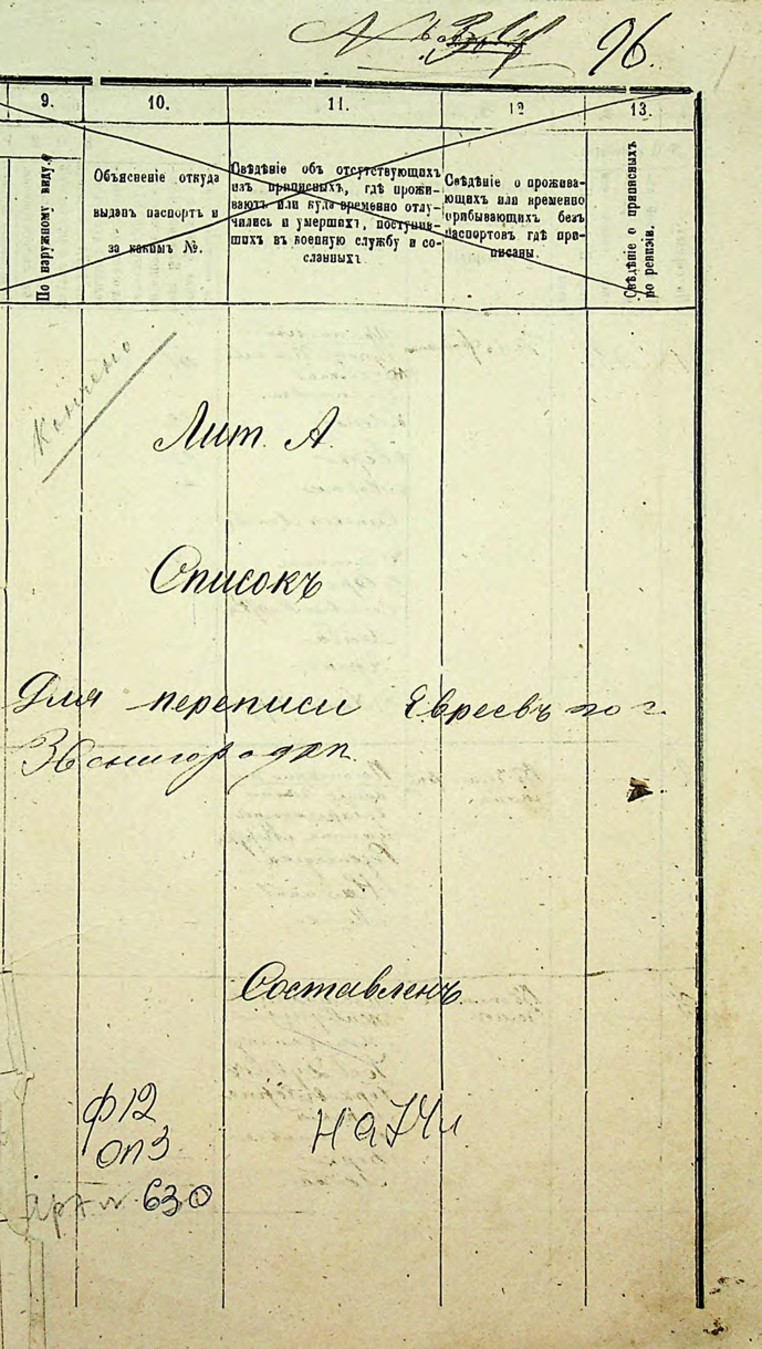 96.
9.
10.
11.
12
13.
По наружному виду.
Объясненіе откуда
выданъ паспортъ и
за какимъ №.
Свѣдѣніе объ отсутствующихъ
изъ приписныхъ, гдѣ прожи-
ваютъ или куда временно отлу-
чились и умершихъ, поступив-
шихъ въ военную службу и со-
сланныхъ
Свѣдѣніе о прожива-
ющихъ или временно
прибывающихъ безъ
паспортовъ гдѣ при-
писаны.
Свѣдѣніе о приписныхъ
по ревизіи.
Кончено
Лит. А.
Списокъ
Для переписи Евреевъ по г.
Звенигородкѣ
Составленъ
ф12
оп3
630
На 74л